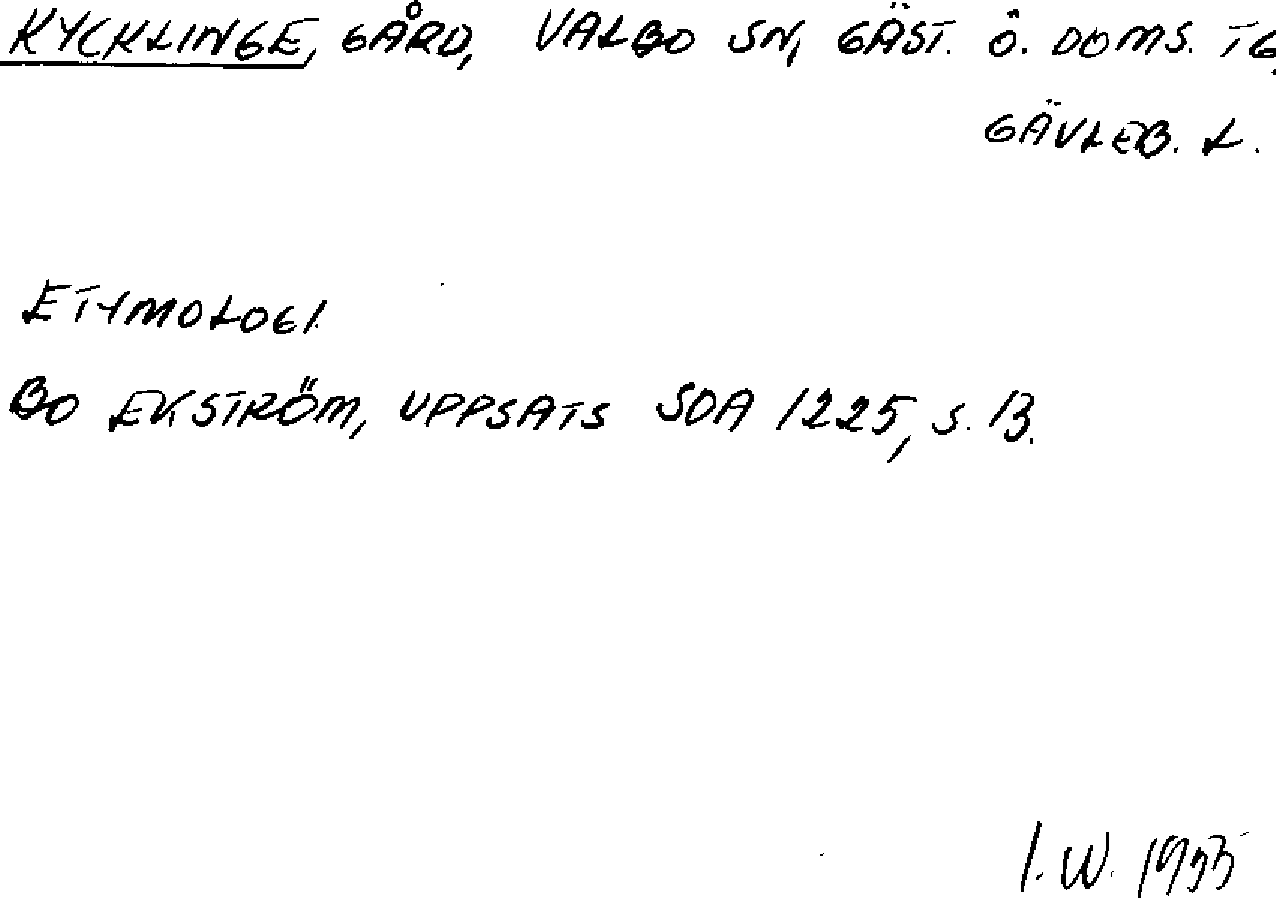 KYCKLINGE, GÅRD, VALBO SN, GÄST. Ö. DOMS. TG.
GÄVLEB. L.
ETYMOLOGI.
BO EKSTRÖM, UPPSATS SOA 1225, S. 13.
I. W. 1955